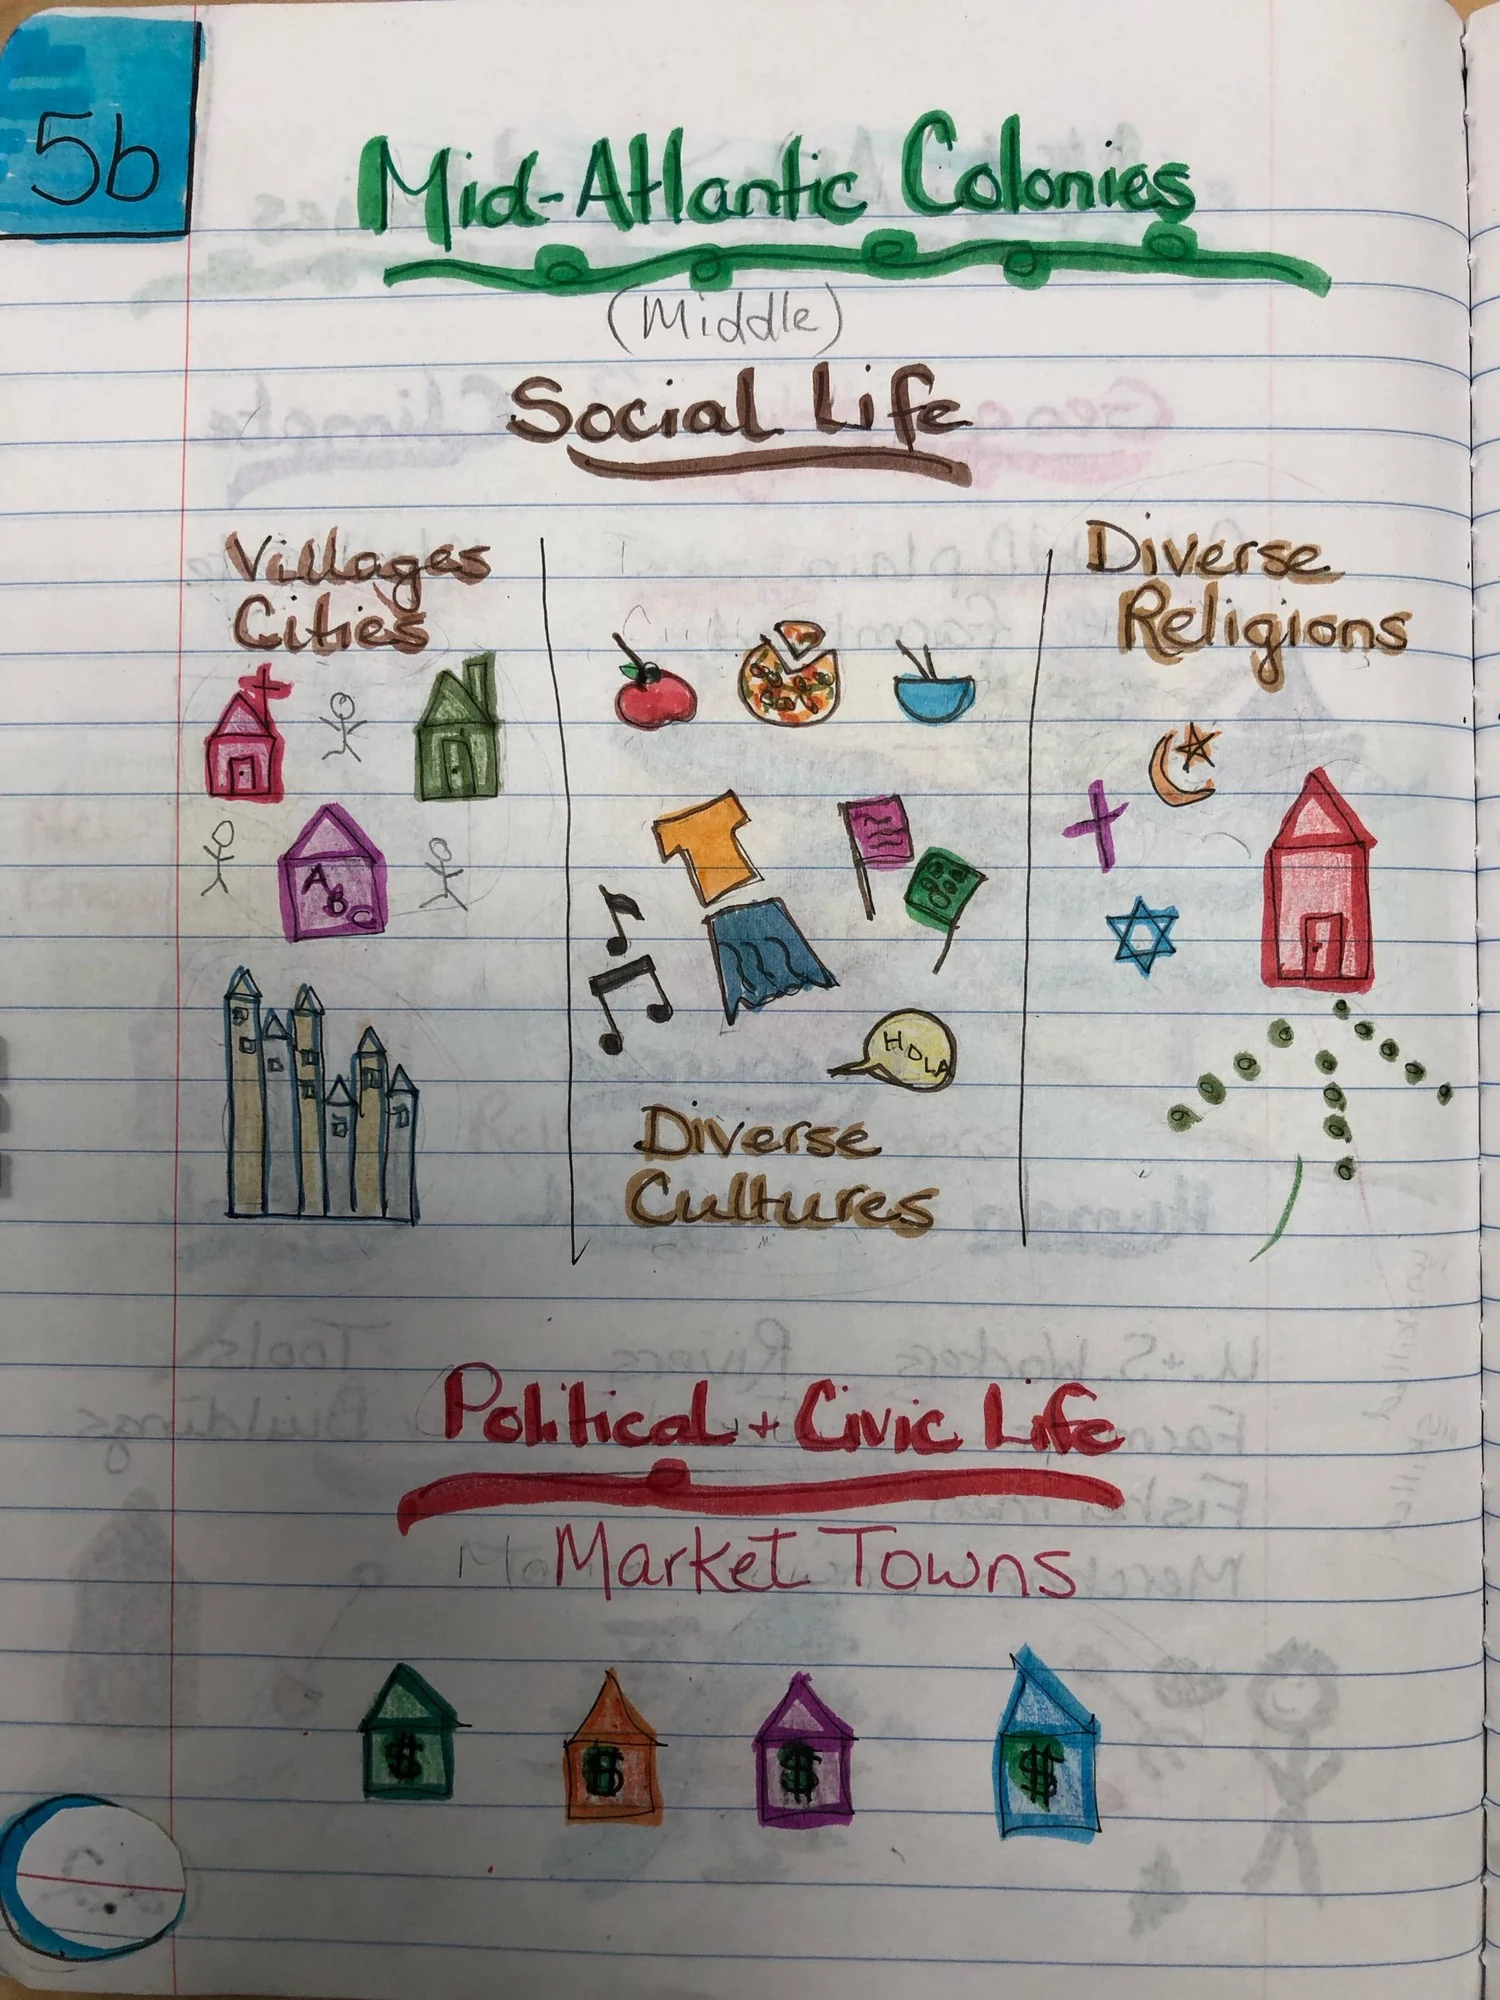 5b
Mid-Atlantic Colonies
(Middle)
Social Life
Villages
Cities
A
B
C
HOLA
Diverse
Cultures
Diverse
Religions
Political + Civic Life
Market Towns
$ $ $ $